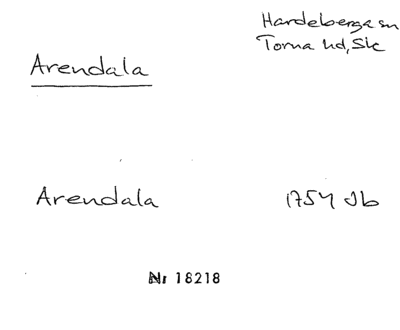 Hardeberga sn
Torna hd, Sk
Arendala
Arendala 1754 Jb
Nr 18218